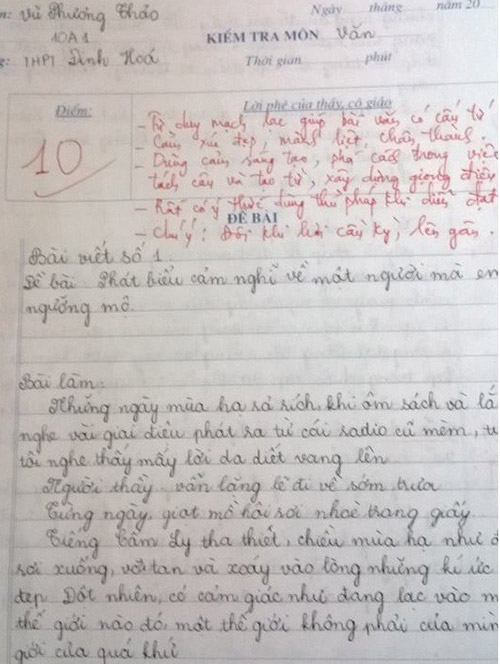 n: Vũ Phương Thảo
Ngày tháng năm 20
10A1
KIỂM TRA MÔN Văn
g: THPT Định Hoá
Thời gian phút
Điểm:
Lời phê của thầy, cô giáo
10
- Tư duy mạch lạc giúp bài văn có cấu tứ
- Cảm xúc đẹp, mãnh liệt, chân thành.
- Dùng câu sáng tạo, phá cách trong việc
tách câu và tạo từ, xây dựng giọng điệu
- Rất có ý thức dùng thủ pháp khi diễn đạt
ĐỀ BÀI
- Chú ý: Đôi khi hơi cầu kỳ, lên gân.
Bài viết số 1.
Đề bài Phát biểu cảm nghĩ về một người mà em
ngưỡng mộ.
Bài làm:
Những ngày mùa hạ rả rích, khi ôm sách và lắ
nghe vài giai điệu phát ra từ cái radio cũ mèm, tu
tôi nghe thấy mấy lời da diết vang lên
Người thầy vẫn lặng lẽ đi về sớm trưa
Từng ngày, giọt mồ hôi rơi nhoè trang giấy
Tiếng Cẩm Ly tha thiết, chiều mùa hạ như đ
rơi xuống, vỡ tan và xoáy vào lòng những kí ức
đẹp Đột nhiên, có cảm giác như đang lạc vào m
thế giới nào đó, một thế giới không phải của mìn
giới của quá khứ